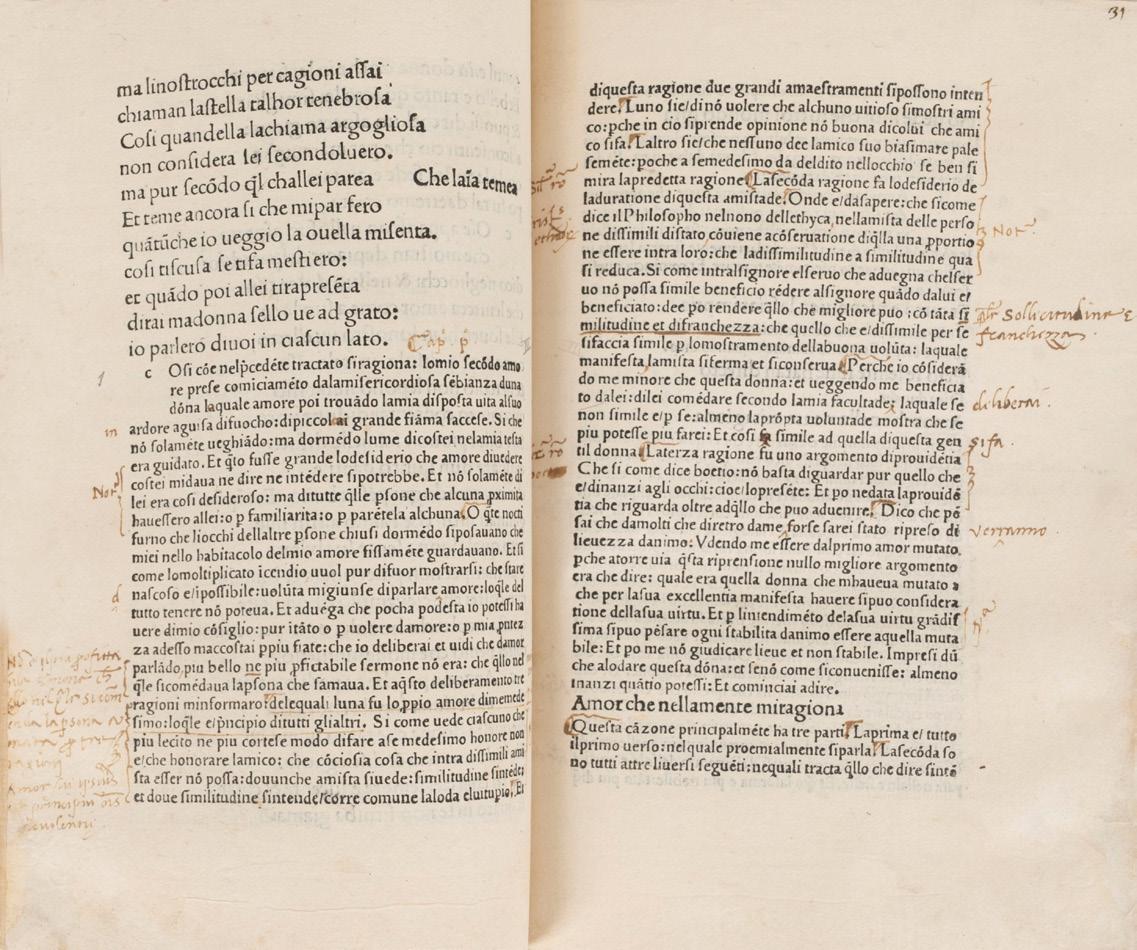 ma linostrocchi per cagioni assai
chiaman lastella talhor tenebrosa
Cosi quandella lachiama argogliosa
non considera lei secondoluero.
ma pur secōdo q̄l challei parea Che laīa temea
Et teme ancora si che mi par fero
quātūche io ueggio la ouella misenta.
cosi tiscusa se tifa mestiero:
et quādo poi allei tirapresēta
dirai madonna sello ue ad grato:
io parlero diuoi in ciascun lato. Cap. p
c Osi cōe nelp̄cedēte tractato siragiona: lomio secōdo amo
re prese comiciamēto dalamisericordiosa sēbianza duna
dōna laquale amore poi trouādo lamia disposta uita alsuo
ardore aguisa difuocho: dipiccol ai grande fiāma saccese. Si che
nō solamēte ueghiādo: ma dormēdo lume dicostei nelamia testa
era guidato. Et q̄to fusse grande lodesiderio che amore diuedere
costei midaua ne dire ne intēdere sipotrebbe. Et nō solamēte di
lei era cosi desideroso: ma ditutte q̄lle p̄sone che alcuna p̱ximita
hauessero allei: o p familiarita: o p parētela alchuna. O q̄te nocti
furno che liocchi dellaltre p̄sone chiusi dormēdo siposauano che
miei nello habitacolo delmio amore fissamēte guardauano. Et si
come lomoltiplicato īcendio uuol pur difuor mostrarsi: che stare
nascoso e/īpossibile: uolūta migiunse diparlare amore: loq̄le del
tutto tenere nō poteua. Et aduēga che pocha podesta io potessi ha
uere dimio cōsiglio: pur ītāto o p uolere damore: o p mia p̱ntez
za adesso maccostai p̱piu fiate: che io deliberai et uidi che damor
parlādo, piu bello ne piu p̱fictabile sermone nō era: che q̄llo nel
q̄le sicomēdaua lapsona che samaua. Et aq̄sto deliberamento tre
ragioni minformaro: delequali luna fu lo, p̱pio amore dimemede
simo: loq̄le e/ p̄ncipio ditutti glialtri. Si come uede ciascuno che
piu lecito ne piu cortese modo difare ase medesimo honore non
e/che honorare lamico: che cōciosia cosa che intra dissimili ami
sta esser nō possa: douunche amista siuede: similitudine sintēde:
et doue similitudine sintende/corre comune laloda eluitupio. Et
Not
31
diquesta ragione due grandi amaestramenti sipossono inten
dere. Luno sie/di nō uolere che alchuno uitioso simostri ami
co: pche in cio siprende opinione nō buona dicolui che ami
co sifa. Laltro sie/che nessuno dee lamico suo biasimare pale
semēte: poche a semedesimo da deldito nellocchio se ben si
mira lapredetta ragione. Lasecōda ragione fa lodesiderio de
laduratione diquesta amistade. Onde e/dasapere: che sicome
dice il Philosopho nelnono dellethyca, nellamista delle perso
ne dissimili distato, cōuiene acōseruatione diq̄lla una p̱portio
ne essere intra loro: che ladissimilitudine a similitudine qua
si reduca. Si come intralsignore elseruo che aduegna chelser
uo nō possa simile beneficio rēdere alsignore quādo dalui e/
beneficiato: dee po rendere q̄llo che migliore puo : cō tāta si
militudine et difranchezza: che quello che e/dissimile per se
sifaccia simile p lomostramento dellabuona uolūta: laquale
manifesta, lamista siferma et siconserua. Perche io cōsiderā
do me minore che questa donna: et ueggendo me beneficia
to dalei: dilei comēdare secondo lamia facultade: laquale se
non simile e/p se: almeno lap̱pta uoluntade mostra che se
piu potesse piu farei: Et cosi simile ad quella diquesta gen
til donna. Laterza ragione fu uno argomento diprouidētia
Che si come dice boetio: nō basta diguardar pur quello che
e/dinanzi agli occhi: cioe/lopresēte: Et po nedata laprouidē
tia che riguarda oltre adq̄llo che puo aduenire. Dico che pē
sai che damolti che diretro dame, forse sarei stato ripreso di
lieuezza danimo: Vdendo me essere dalprimo amor mutato.
pche atorre uia q̄sta riprensione nullo migliore argomento
era che dire: quale era quella donna che mhaueua mutato a
che per lasua excellentia manifesta hauere sipuo considera
tione dellasua uirtu. Et p lintendimēto delasua uirtu grādis
sima sipuo pēsare ogni stabilita danimo essere aquella muta
bile: Et po me nō giudicare lieue et non stabile. Impresi dū
che alodare questa dōna: et senō come siconuenisse: almeno
inanzi quātio potessi: Et cominciai adire.
Amor che nellamente miragiona
Questa cāzone principalmēte ha tre parti. Laprima e/ tutto
ilprimo uerso: nelquale proemialmente siparla. Lasecōda so
no tutti attre liuersi seguēti: nequali tracta q̄llo che dire sintē
Not
Sollicitudine
franchezza
deliberai.
si fa.
verranno